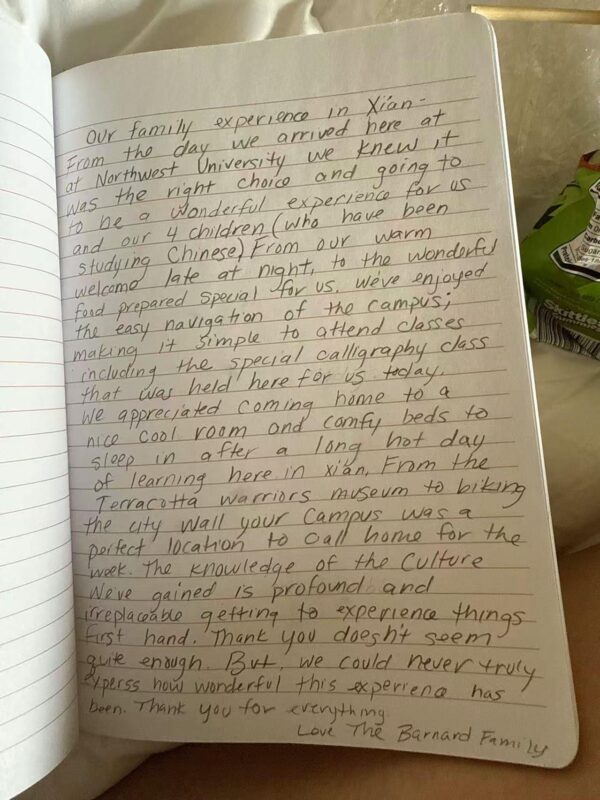 Our family experience in Xian-
From the day we arrived here at
at Northwest University we knew it
was the right choice and going to
to be a wonderful experience for us
and our 4 children (who have been
studying Chinese) From our warm
welcome late at night, to the wonderful
food prepared special for us. We've enjoyed
the easy navigation of the campus;
making it simple to attend classes
including the special calligraphy class
that was held here for us today.
We appreciated coming home to a
nice cool room and comfy beds to
sleep in after a long hot day
of learning here in xi'an. From the
Terracotta warriors museum to biking
the city wall your campus was a
perfect location to call home for the
week. The knowledge of the culture
We've gained is profound and
irreplaceable getting to experience things
first hand. Thank you doesn't seem
quite enough. But, we could never truly
experss how wonderful this experienc has
been. Thank you for everything
Love The Barnard Family
Skittles